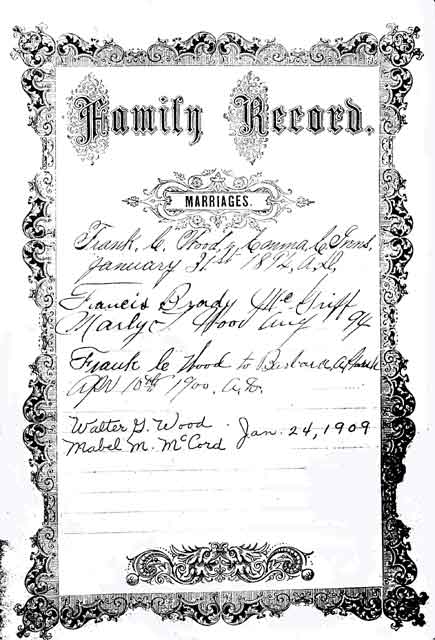 Family Record.
MARRIAGES.
Frank. C. Wood
January 31st 1892, A.D.
Francis Brady McGriff
Wood Aug 94
Frank C Wood to Barbara A.
Apr 10th 1900. A.D.
Walter G. Wood
Jan. 24, 1909
Mabel M. McCord